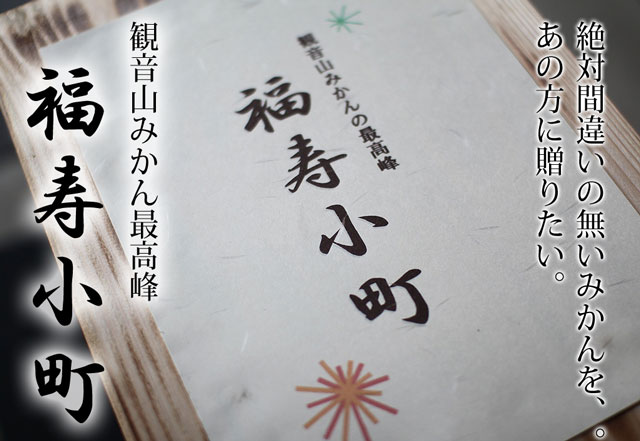 絶対間違いの無いみかんを、。
あの方に贈りたい。
観音山みかんの最高峰
福寿小町
観音山みかん最高峰
福寿小町